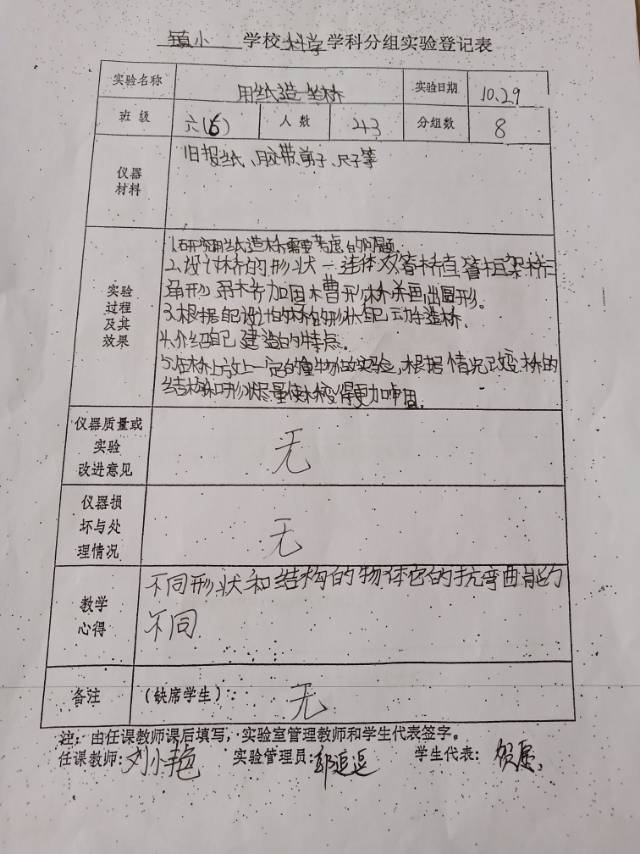 镇小 学校科学学科分组实验登记表
实验名称 用纸造坐桥 实验日期 10.29
班 级 六(6) 人 数 43 分组数 8
仪器
材料
旧报纸、胶带、剪子、尺子等
实验
过程
及其
效果
1.研究用纸造桥需要考虑的问题.
2.设计桥的形状一
形 加固 槽形桥并画出图形。
3.根据自己设计的桥的形状自己动手造桥.
4.介绍自己建造的特点.
5.在桥上放上一定的重物做实验,根据情况改变桥的
结构和形状尽量使桥变得更加牢固.
仪器质量或
实验
改进意见
无
仪器损
坏与处
理情况
无
教学
心得
不同形状和结构的物体它的抗弯曲能力
不同
备注 (缺席学生): 无
注: 由任课教师课后填写, 实验室管理教师和学生代表签字。
任课教师: 刘小艳 实验管理员: 学生代表: